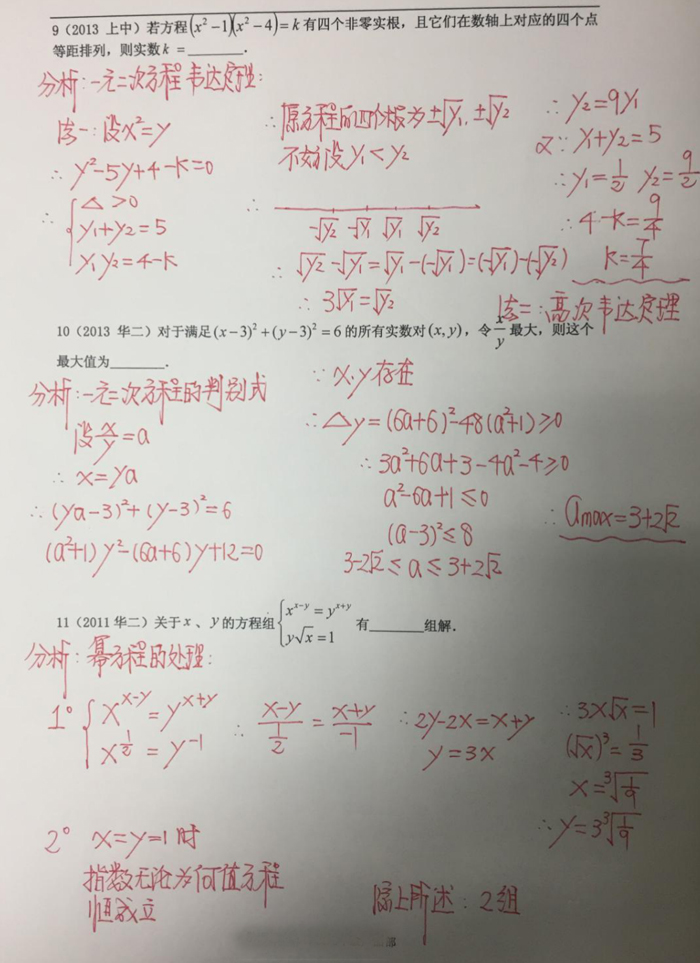 9（2013 上中）若方程(x²−1)(x²−4)=k 有四个非零实根，且它们在数轴上对应的四个点
等距排列，则实数 k =________.
分析：一元二次方程 韦达定理：
法一：设x²=y
∴ y²−5y+4−k=0
∴ { △>0
y₁+y₂=5
y₁y₂=4−k
∴ 原方程的四个根为±√y₁, ±√y₂
不妨设 y₁<y₂
∴
−√y₂ −√y₁ √y₁ √y₂
∴ √y₂−√y₁=√y₁−(−√y₁)=(−√y₁)−(−√y₂)
∴ 3√y₁=√y₂
∴ y₂=9y₁
又∵ y₁+y₂=5
∴ y₁=1/2 y₂=9/2
∴ 4−k=9/4
k=7/4
法二：高次韦达定理
10（2013 华二）对于满足(x−3)²+(y−3)²=6 的所有实数对(x,y)，令x/y最大，则这个
最大值为________.
分析：一元二次方程的判别式
设x/y=a
∴ x=ya
∴ (ya−3)²+(y−3)²=6
(a²+1)y²−(6a+6)y+12=0
∵ x,y存在
∴ △y=(6a+6)²−48(a²+1)≥0
∴ 3a²+6a+3−4a²−4≥0
a²−6a+1≤0
(a−3)²≤8
3−2√2≤a≤3+2√2
∴ amax=3+2√2
11（2011 华二）关于 x 、 y 的方程组{ x^(x−y)=y^(x+y)
y√x=1 有________组解.
分析：幂方程的处理：
1° { x^(x−y)=y^(x+y)
x^(1/2)=y^(−1)
∴ (x−y)/(1/2)=(x+y)/(−1)
∴ 2y−2x=x+y
y=3x
∴ 3x√x=1
(√x)³=1/3
x=³√(1/9)
∴ y=3³√(1/9)
2° x=y=1时
指数无论为何值方程
恒成立
综上所述：2组